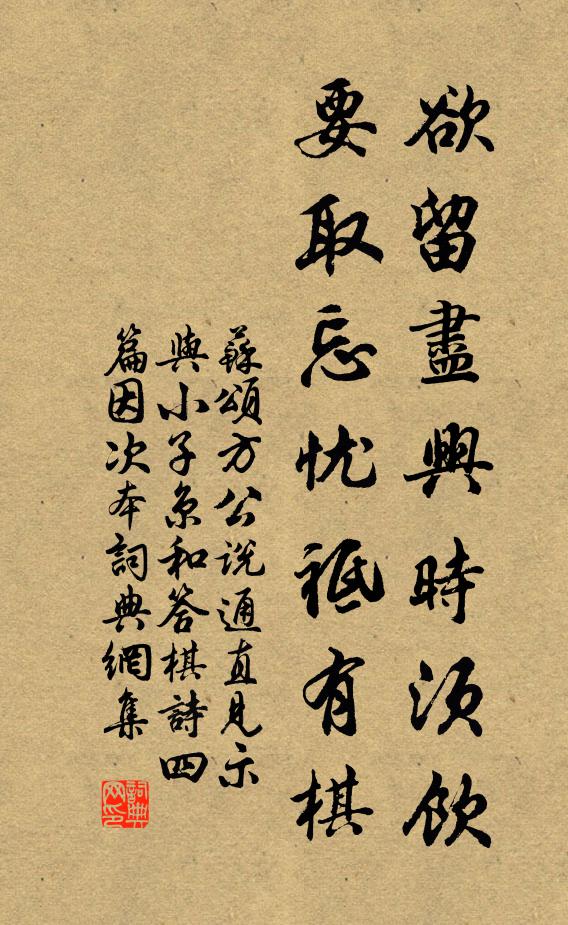 欲留盡興時須飲
要取忘忧祗有棋
蘇頌方公説通直見示
與小子京和答棋詩四
篇因次本詞典網集
詞典网印